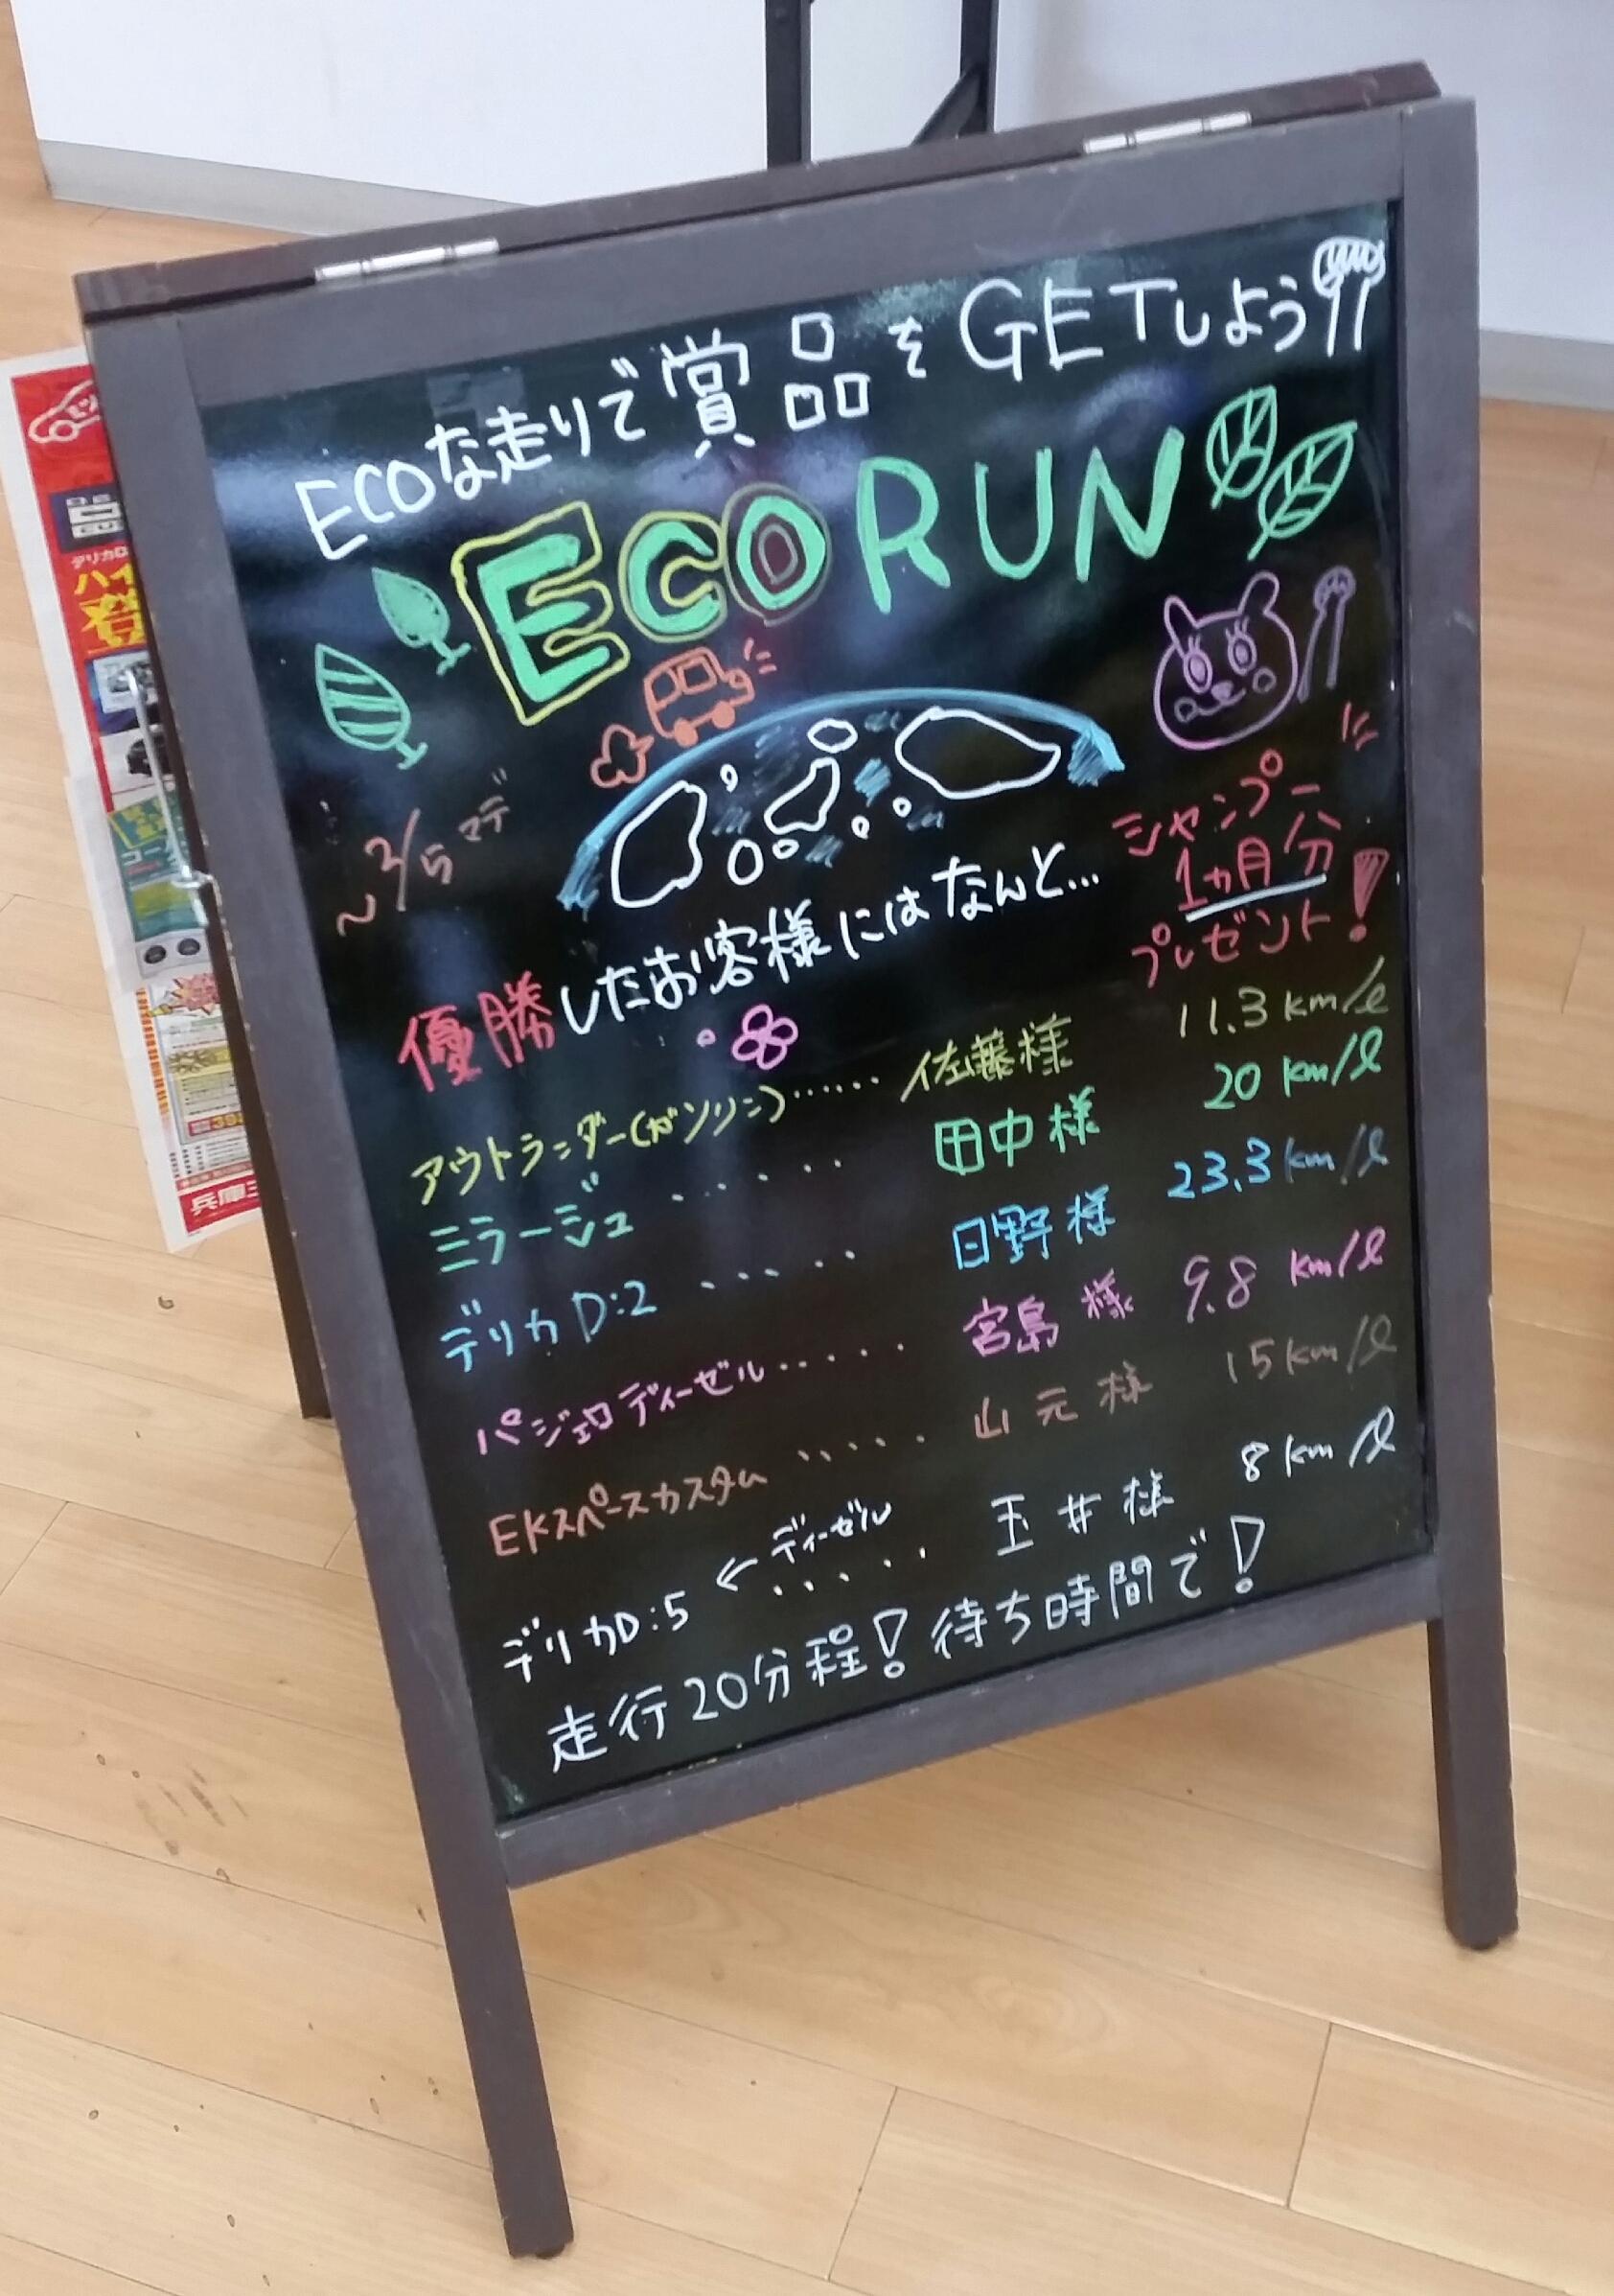 ECOな走りで賞品をGETしよう!!
ECO RUN
~3/5マデ
シャンプー
1ヵ月分
プレゼント!
優勝したお客様にはなんと…
アウトランダー(ガソリン)…… 佐藤様 11.3 km/ℓ
ミラージュ ...... 田中様 20 km/ℓ
デリカD:2 ...... 日野様 23.3 km/ℓ
パジェロディーゼル ...... 宮島様 9.8 km/ℓ
EKスペースカスタム ...... 山元様 15 km/ℓ
デリカD:5 ← ディーゼル ...... 玉井様 8 km/ℓ
走行20分程! 待ち時間で!
デリカD
ハイ
登
兵庫三